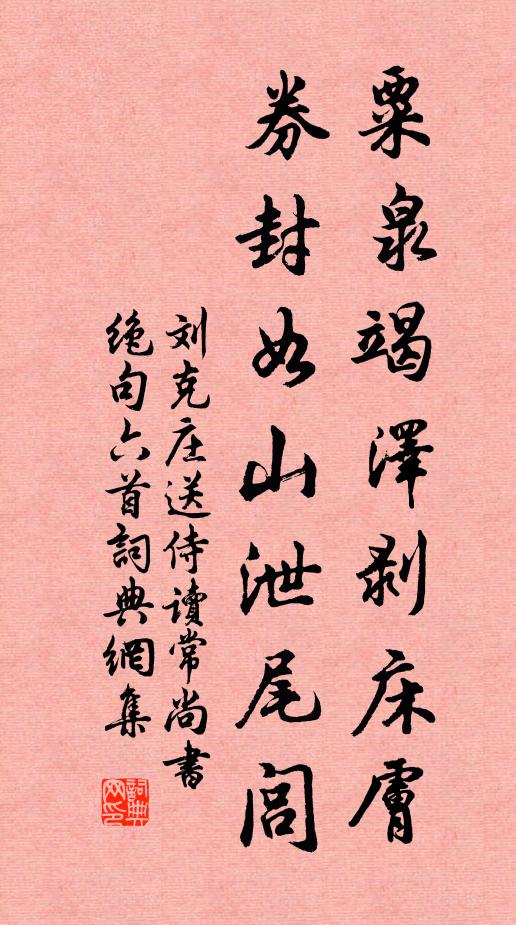 粟泉竭澤剥床膚
券封如山泄尾闾
刘克庄送侍讀常尚書
绝句六首詞典網集
詞典网印